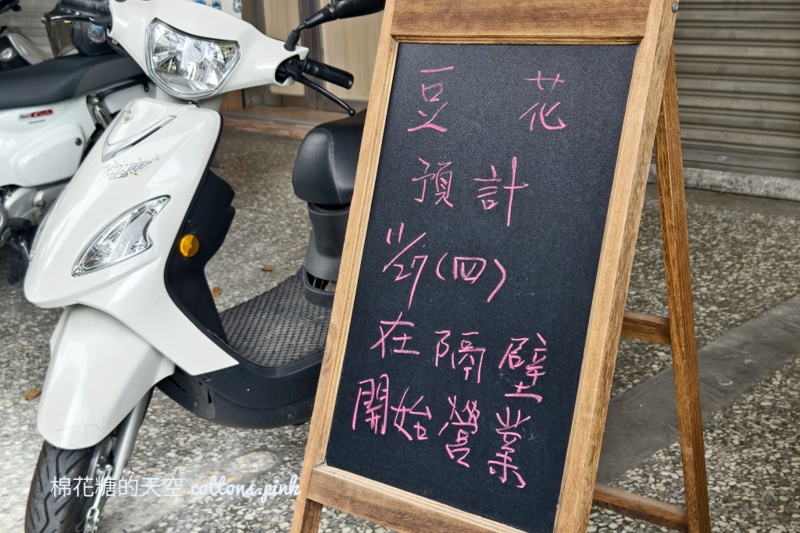 豆花
預計
11/27(四)
在隔壁
開始營業
棉花糖的天空 cottons.pink